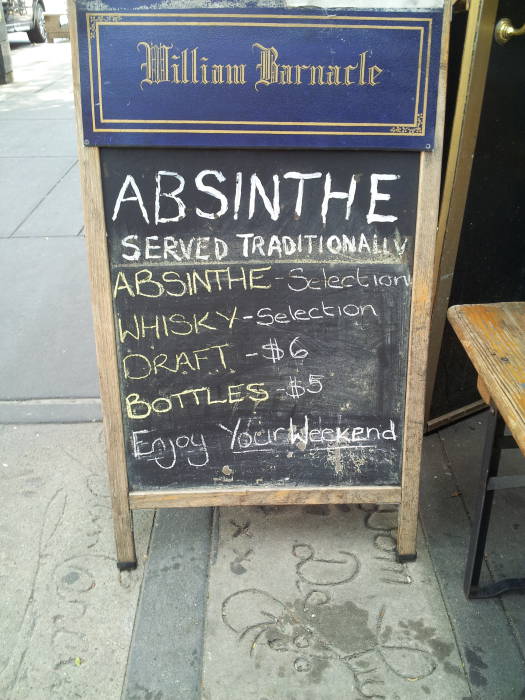 William Barnacle
ABSINTHE
SERVED TRADITIONALLY
ABSINTHE - Selection
WHISKY - Selection
DRAFT - $6
BOTTLES - $5
Enjoy Your Weekend